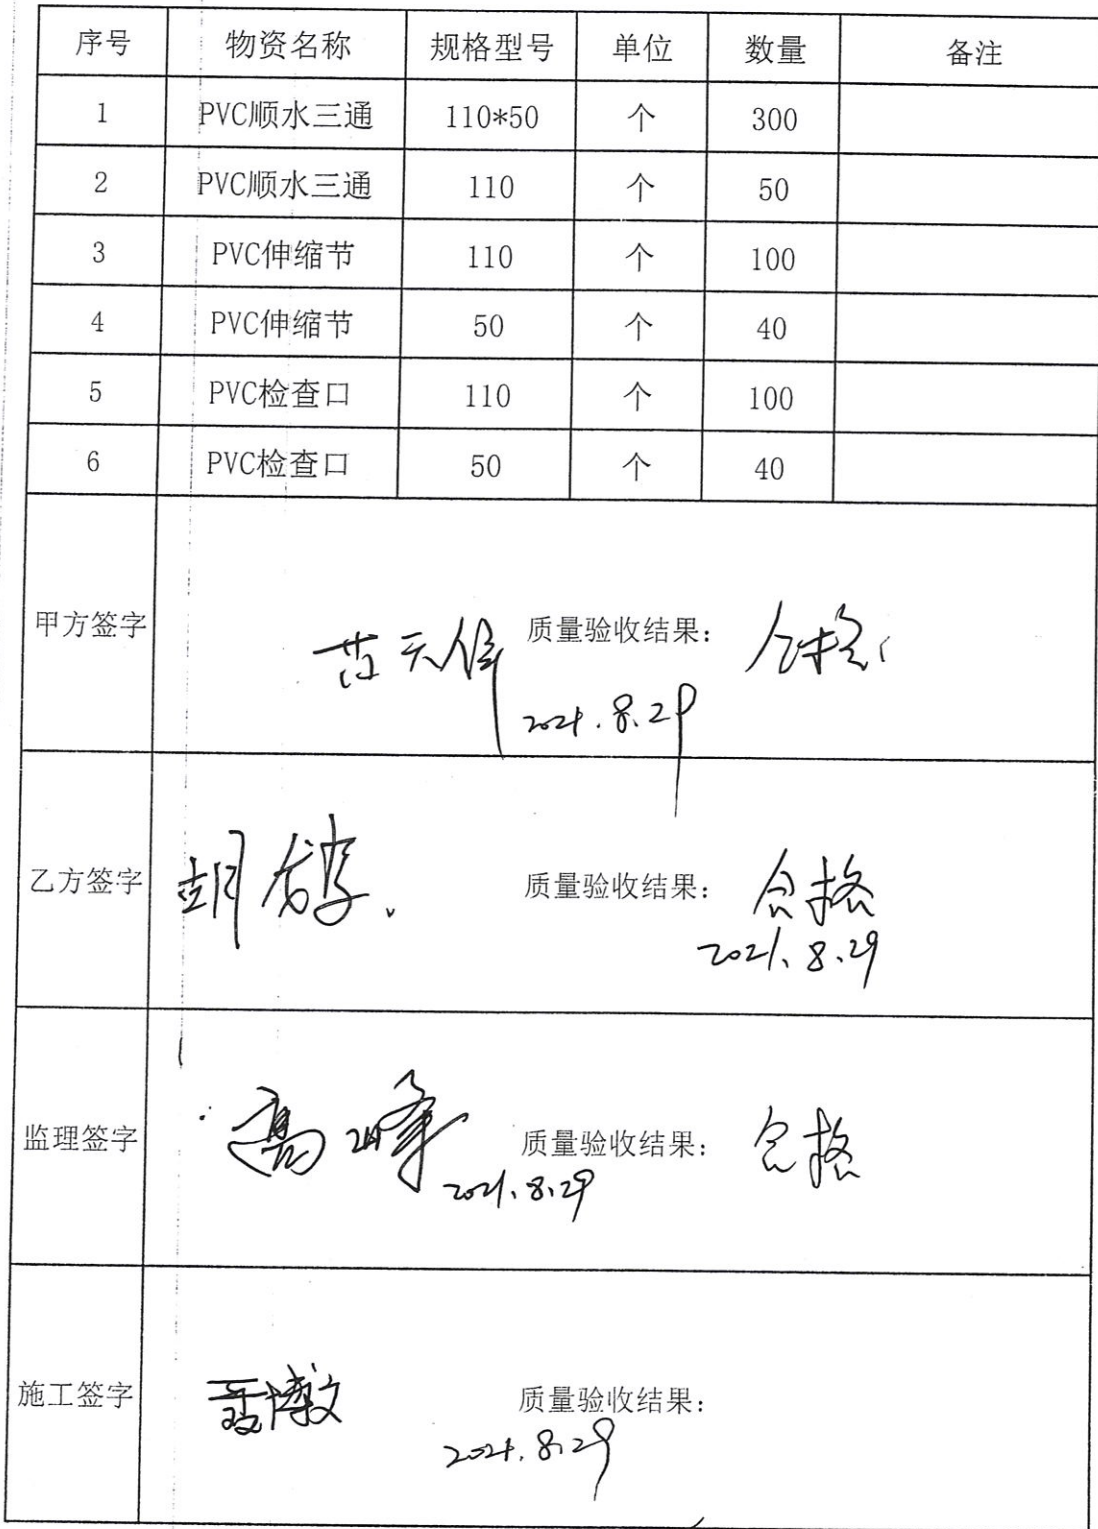 序号 物资名称 规格型号 单位 数量 备注
1 PVC顺水三通 110*50 个 300
2 PVC顺水三通 110 个 50
3 PVC伸缩节 110 个 100
4 PVC伸缩节 50 个 40
5 PVC检查口 110 个 100
6 PVC检查口 50 个 40
甲方签字 范天 质量验收结果: 合格
2021.8.29
乙方签字 胡 质量验收结果: 合格
2021.8.29
监理签字 高峰 质量验收结果: 合格
2021.8.29
施工签字 博文 质量验收结果:
2021.8.29